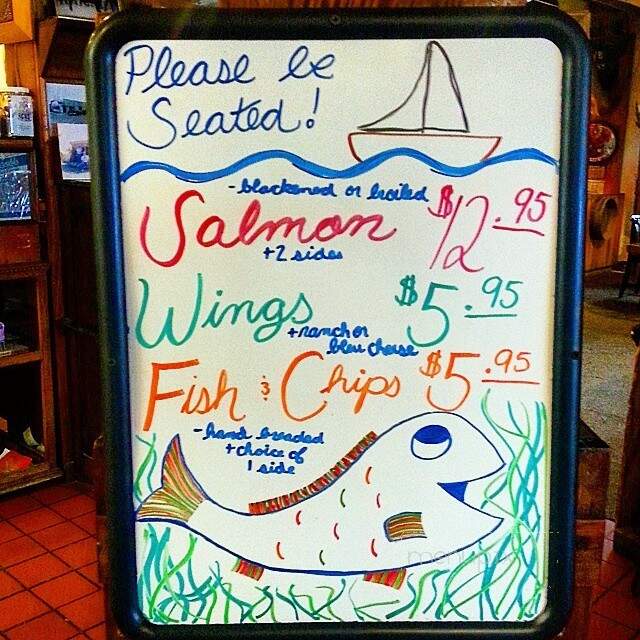 Please be
Seated!
- blackened or broiled
Salmon $12.95
+2 sides
Wings $5.95
+ranch or
bleu cheese
Fish & Chips $5.95
- hand breaded
+ choice of
1 side